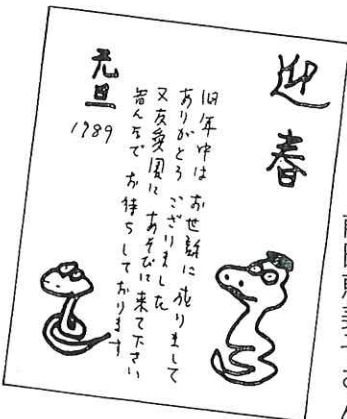 迎春
旧年中は お世話に成りまして
ありがとう ございました
又友愛園に あそびに来て下さい
皆んなで お待ちしております
元旦
1989